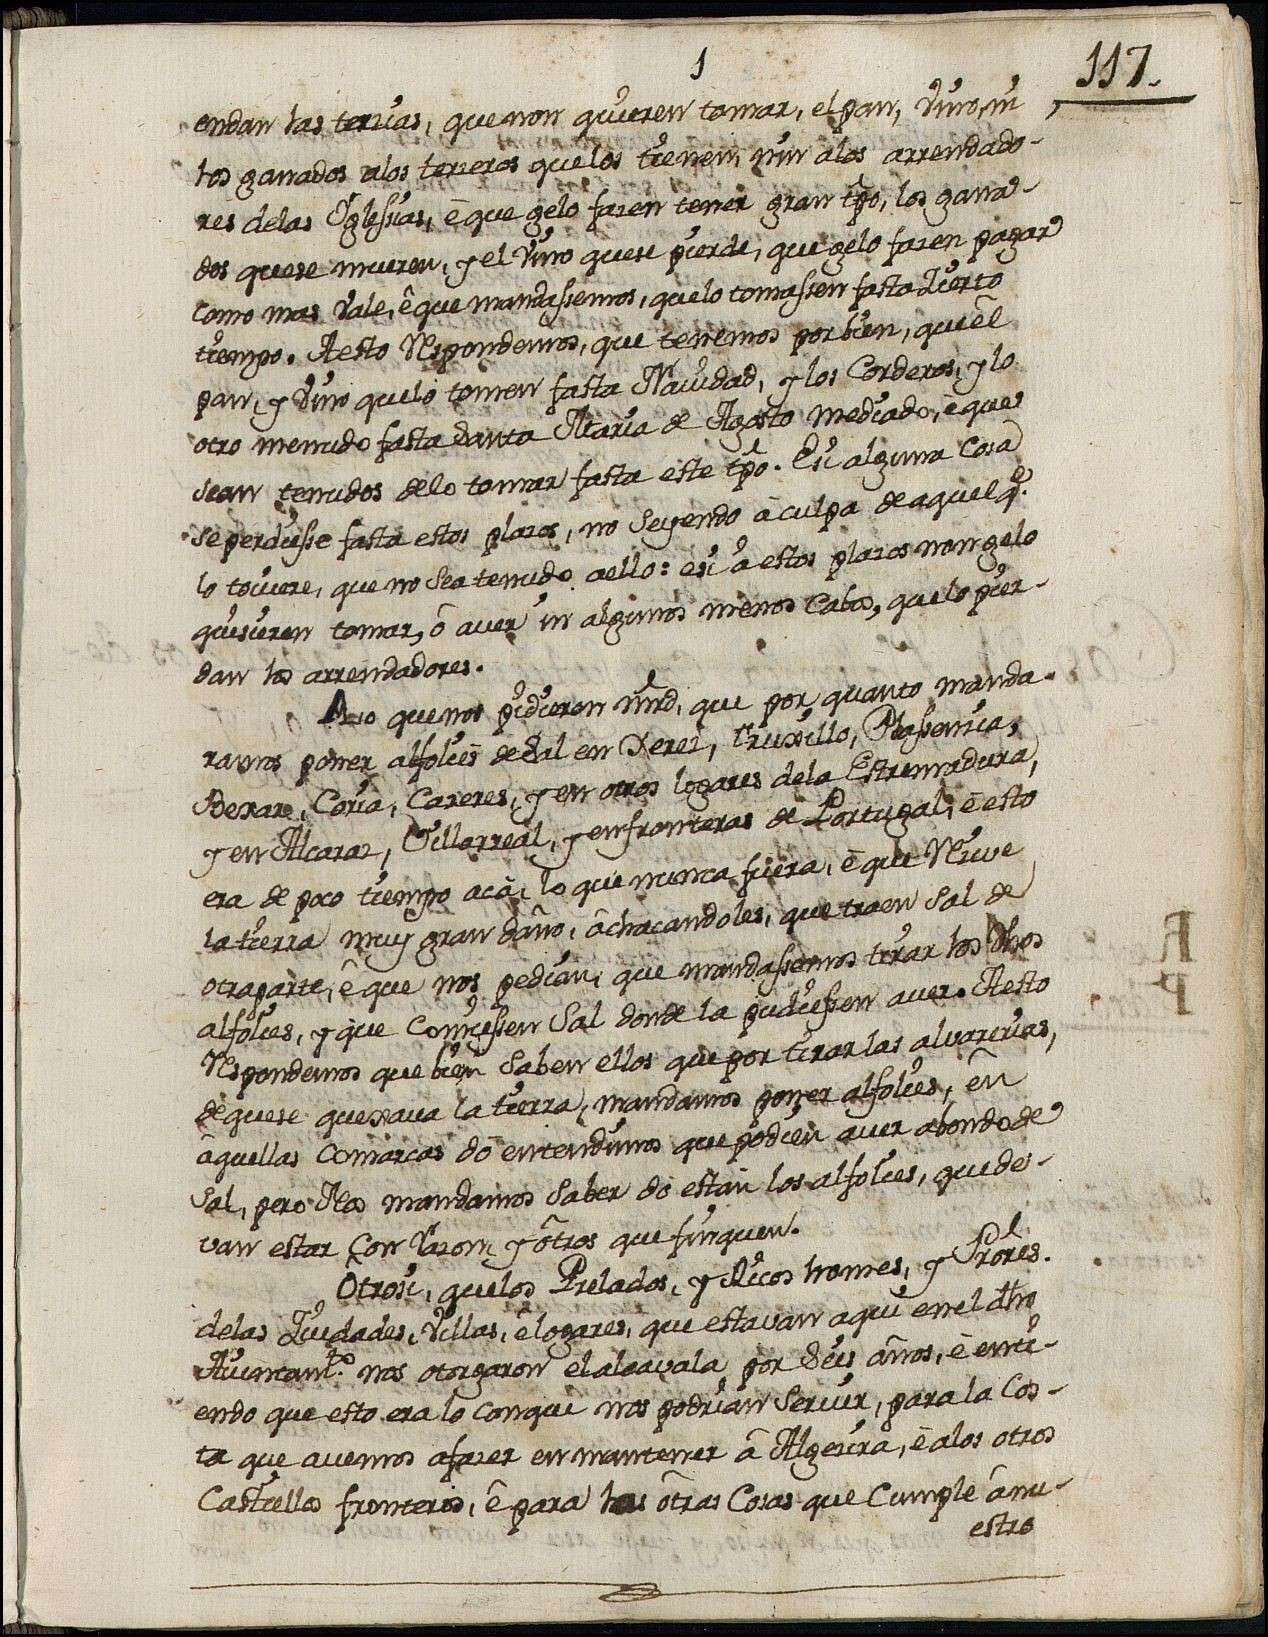 1
117.
endan las tercias, que non quieren tomar, el pan, vino, ni
los ganados a los terzeros que los tienen, nin a los arrendado-
res de las Yglesias, è que gelo fazen tener gran tpo, los gana-
dos quese mueren, y el vino quese pierde, que gelo fazen pagar
como mas vale, è que mandassemos, quelo tomassen fasta Zierto
tiempo. A esto Respondemos, que tenemos por bien, que êl
pan, y vino quelo tomen fasta Navidad, y los Corderos, y lo
otro menudo fasta Santa Maria de Agosto mediado, è que
sean tenudos de lo tomar fasta este tpo. E si alguna Cosa
se perdiesse fasta estos plazos, no seyendo à culpa de aquel q.e
lo toviere, que no sea tenudo aello: e si à estos plazos non gelo
quisieren tomar, ô aver in algunos menos Cabos, que lo pier-
dan los arrendadores.
A lo que nos pidieron mrd, que por quanto manda-
ramos poner alfolies de Sal en Xerez, Truxillo, Plassencia,
Bexar, Coria, Cazeres, y en otros logares dela Estremadura,
y en Alcaraz, Villarreal, y en fronteras de Portugal, è esto
era de poco tiempo acà, lo que nunca fuera, è que Recive
la tierra muy gran daño, âchacandoles, que traen Sal de
otra parte, ê que nos pedian, que mandassemos tirar los dhos
alfolies, y que Comiessen Sal donde la pudiessen aver. A esto
Respondemos que bien saben ellos que por tirar las alvarerias,
de quese quexava la tierra, mandamos poner alfolies, en
âquellas Comarcas dô entendimos que podien aver abondo de
Sal, pero Nos mandamos saber dô estan los alfolies, que de-
van estar Con Razon, y ôtros que finquen.
Otrosi, quelos Prelados, y Ricos homes, y Prores.
delas Ziudades, Villas, êlogares, que estavan aqui en el dho
Aiuntam.to nos otorgaron el alcavala por Seis años, è enti-
endo que esto era lo conque nos podrian servir, para la Cos-
ta que avemos afazer en mantener â Algezira, è a los otros
Castiellos fronteros, ê para las ôtras Cosas que Cumple ânu-
estro